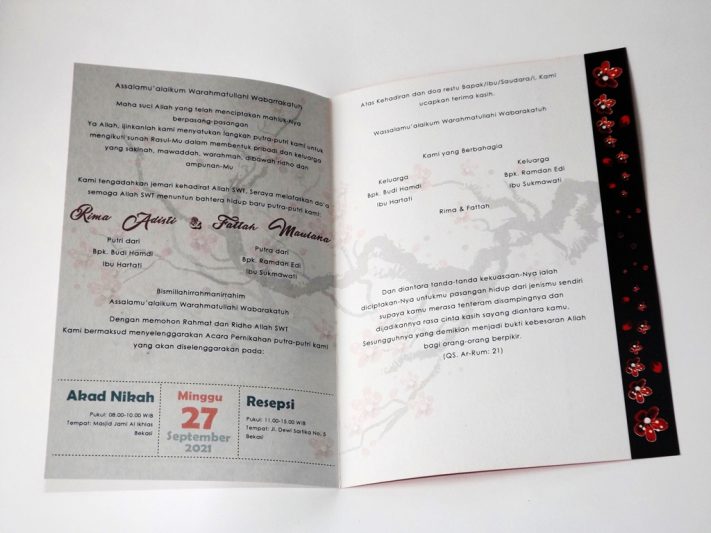 Assalamu'alaikum Warahmatullahi Wabarrakatuh
Maha suci Allah yang telah menciptakan mahluk-Nya
berpasang-pasangan
Ya Allah, ijinkanlah kami menyatukan langkah putra-putri kami untuk
mengikuti sunah Rasul-Mu dalam membentuk pribadi dan keluarga
yang sakinah, mawaddah, warahmah, dibawah ridho dan
ampunan-Mu
Kami tengadahkan jemari kehadirat Allah SWT, Seraya melafaskan do'a
semoga Allah SWT menuntun bahtera hidup baru putra-putri kami:
Rima Adisti & Fattah Maulana
Putri dari
Bpk. Budi Hamdi
Ibu Hartati
Putra dari
Bpk. Ramdan Edi
Ibu Sukmawati
Bismillahirrahmanirrahim
Assalamu'alaikum Warahmatullahi Wabarakatuh
Dengan memohon Rahmat dan Ridho Allah SWT
Kami bermaksud menyelenggarakan Acara Pernikahan putra-putri kami
yang akan diselenggarakan pada:
Akad Nikah
Pukul: 08.00-10.00 WIB
Tempat: Masjid Jami Al Ikhlas
Bekasi
Minggu
27
September
2021
Resepsi
Pukul: 11.00-15.00 WIB
Tempat: Jl. Dewi Sartika No. 5
Bekasi
Atas Kehadiran dan doa restu Bapak/Ibu/Saudara/i, Kami
ucapkan terima kasih.
Wassalamu'alaikum Warahmatullahi Wabarakatuh
Kami yang Berbahagia
Keluarga
Bpk. Budi Hamdi
Ibu Hartati
Keluarga
Bpk. Ramdan Edi
Ibu Sukmawati
Rima & Fattan
Dan diantara tanda-tanda kekuasaan-Nya ialah
diciptakan-Nya untukmu pasangan hidup dari jenismu sendiri
supaya kamu merasa tenteram disampingnya dan
dijadikannya rasa cinta kasih sayang diantara kamu,
Sesungguhnya yang demikian menjadi bukti kebesaran Allah
bagi orang-orang berpikir.
(QS. Ar-Rum: 21)